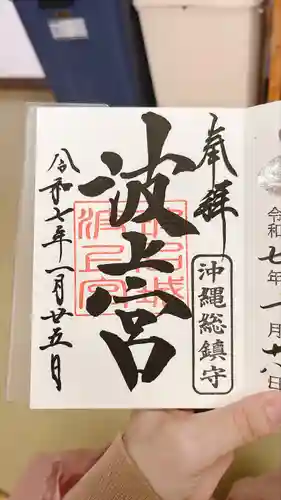 奉拝
沖縄総鎮守
波上宮
令和七年一月廿五日
令和七年一月